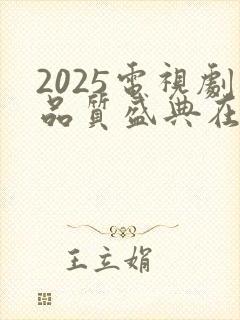 2025電視劇
品質盛典在
王立娟